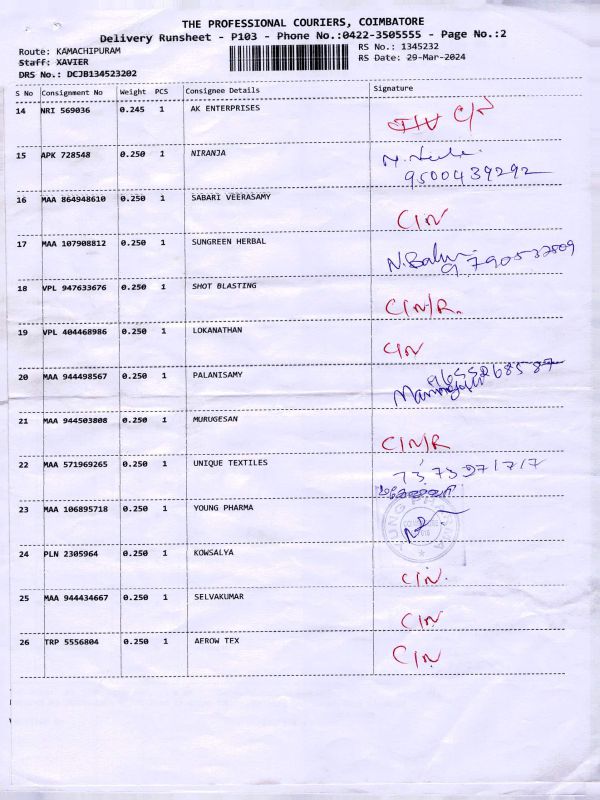 THE PROFESSIONAL COURIERS, COIMBATORE
Delivery Runsheet - P103 - Phone No.:0422-3505555 - Page No.:2
Route: KAMACHIPURAM RS No.: 1345232
Staff: XAVIER RS Date: 29-Mar-2024
DRS No.: DCJB134523202
S No Consignment No Weight PCS Consignee Details Signature
14 NRI 569036 0.245 1 AK ENTERPRISES C/N
15 APK 728548 0.250 1 NIRANJA
9500439292
16 MAA 864948610 0.250 1 SABARI VEERASAMY C/N
17 MAA 107908812 0.250 1 SUNGREEN HERBAL
18 VPL 947633676 0.250 1 SHOT BLASTING C/N/R.
19 VPL 404468986 0.250 1 LOKANATHAN C/N
20 MAA 944498567 0.250 1 PALANISAMY
21 MAA 944503808 0.250 1 MURUGESAN C/N/R
22 MAA 571969265 0.250 1 UNIQUE TEXTILES
23 MAA 106895718 0.250 1 YOUNG PHARMA
24 PLN 2305964 0.250 1 KOWSALYA C/N.
25 MAA 944434667 0.250 1 SELVAKUMAR C/N
26 TRP 5556804 0.250 1 AEROW TEX C/N